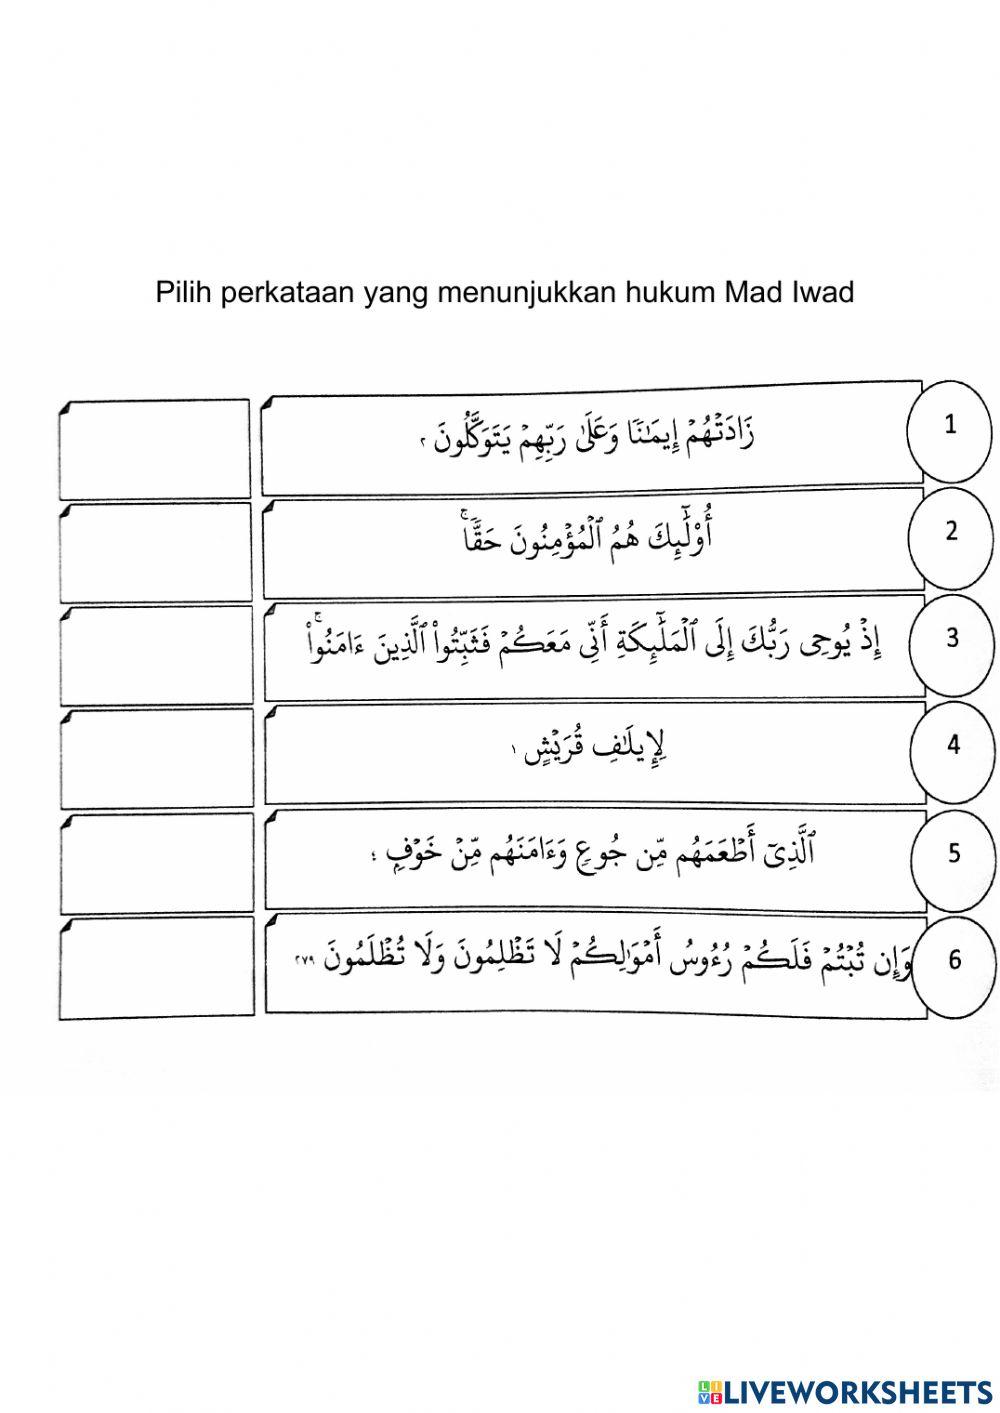 Pilih perkataan yang menunjukkan hukum Mad Iwad
زَادَتۡهُمۡ إِيمَٰنٗا وَعَلَىٰ رَبِّهِمۡ يَتَوَكَّلُونَ ٢
1
أُوْلَٰٓئِكَ هُمُ ٱلۡمُؤۡمِنُونَ حَقّٗاۚ
2
إِذۡ يُوحِي رَبُّكَ إِلَى ٱلۡمَلَٰٓئِكَةِ أَنِّي مَعَكُمۡ فَثَبِّتُواْ ٱلَّذِينَ ءَامَنُواْۚ
3
لِإِيلَٰفِ قُرَيۡشٍ ١
4
ٱلَّذِيٓ أَطۡعَمَهُم مِّن جُوعٖ وَءَامَنَهُم مِّنۡ خَوۡفِۭ ٤
5
وَإِن تُبۡتُمۡ فَلَكُمۡ رُءُوسُ أَمۡوَٰلِكُمۡ لَا تَظۡلِمُونَ وَلَا تُظۡلَمُونَ ٢٧٩
6
LIVEWORKSHEETS